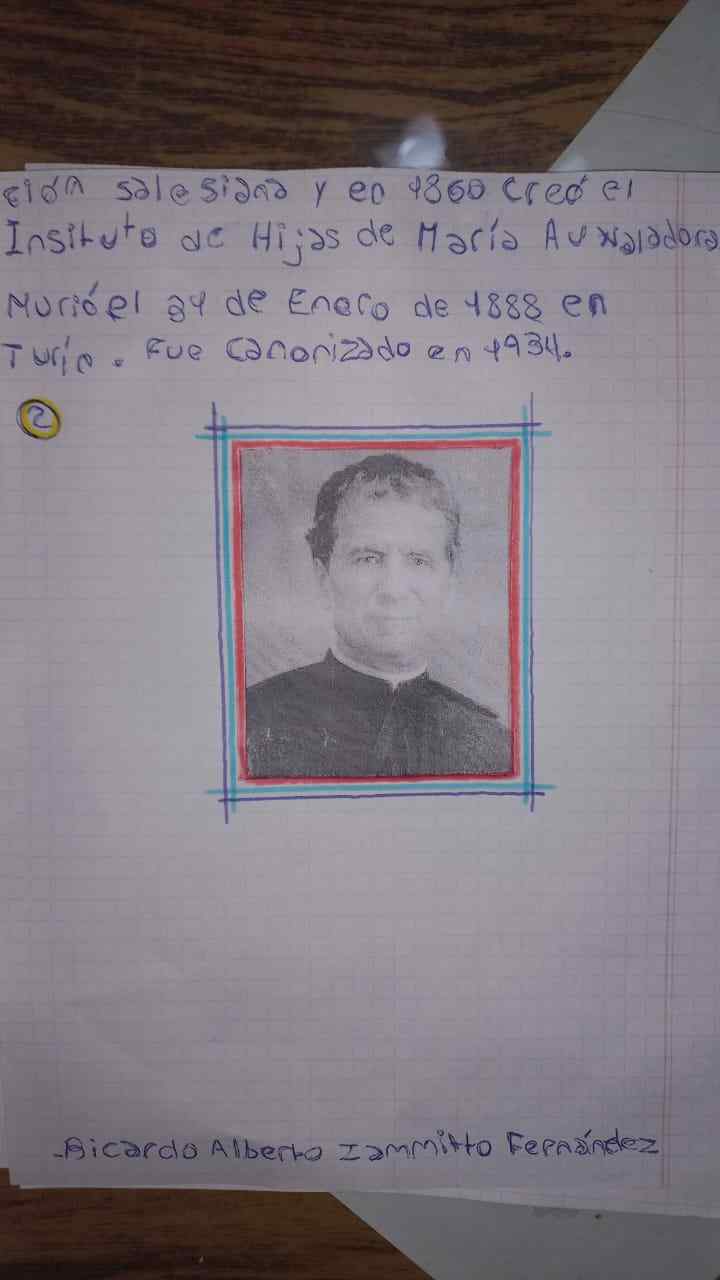 ción salesiana y en 1860 creó el
Insituto de Hijas de María Auxialadora
Murió el 31 de Enero de 1888 en
Turín. Fue canonizado en 1934.
2
-Ricardo Alberto Iammitto Fernández